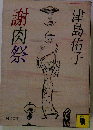 津島佑子
謝肉祭